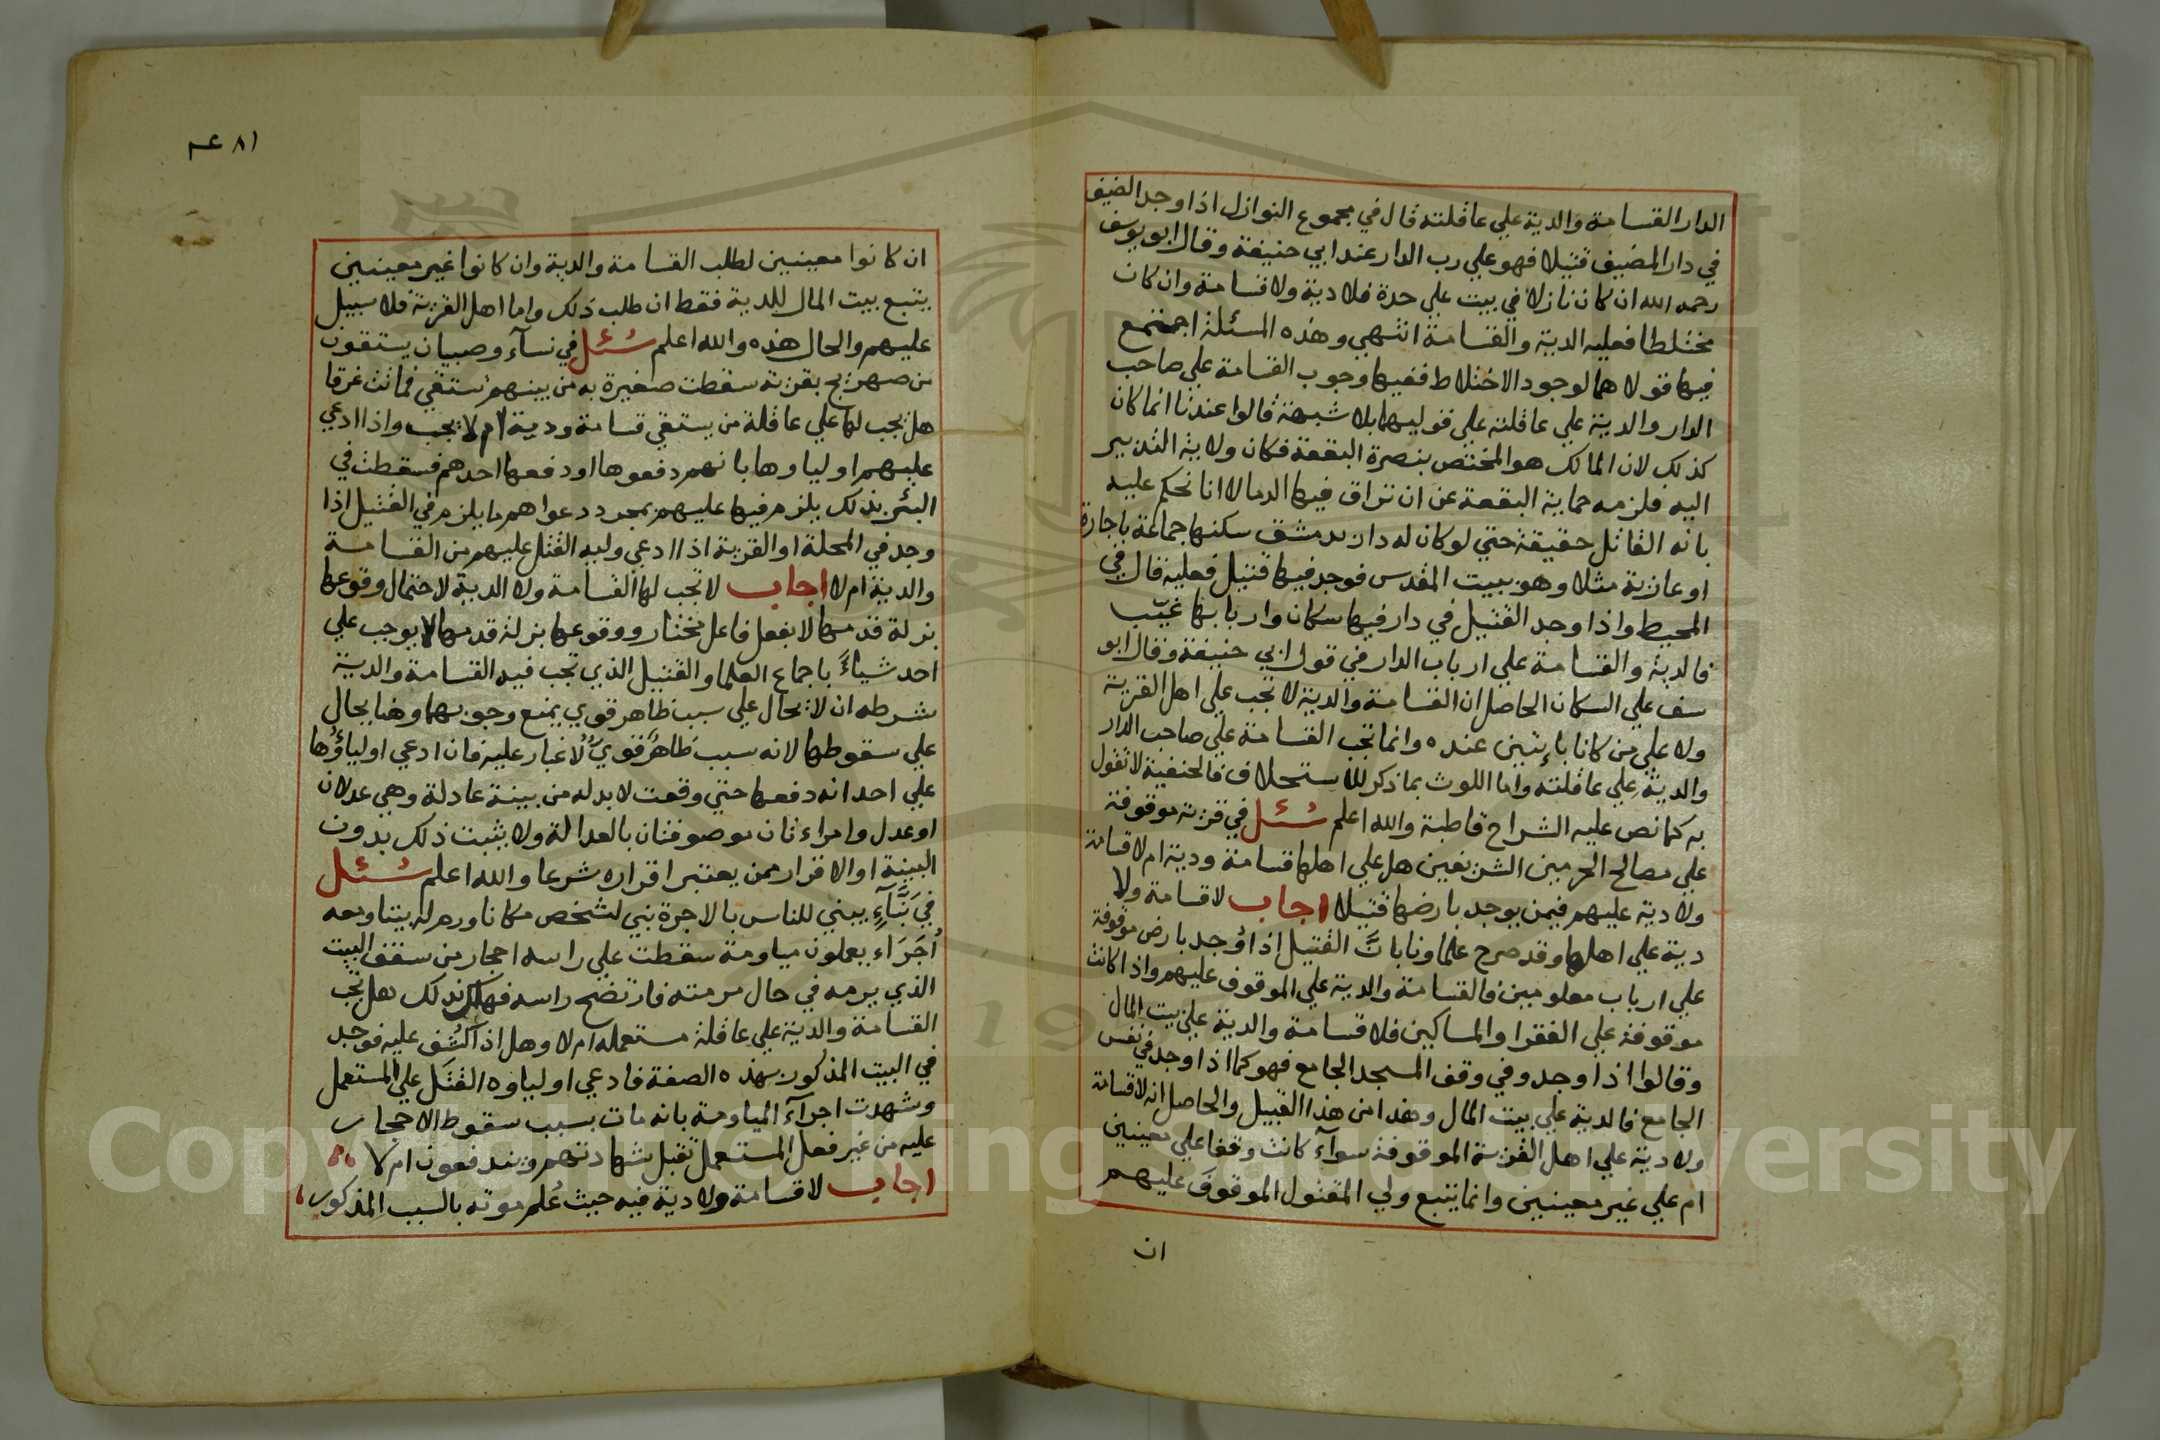 الدار القسامة والدية علي عاقلته قال في مجموع النوازل اذا وجد الضيف
في دار المضيف قتيلا فهو علي رب الدار عند ابي حنيفة وقال ابو يوسف
رحمه الله ان كان نازلا في بيت علي حدة فلا دية ولا قسامة وان كان
مختلطا فعليه الدية والقسامة انتهي وهذه المسئلة اجتمع
فيها قولاهما لوجود الاختلاط ففيها وجوب القسامة علي صاحب
الدار والدية علي عاقلته علي قوليهما بلا شبهة قالوا عندنا انما كان
كذلك لان المالك هو المختص بنصرة البقعة فكان ولاية التدبير
اليه فلزمه حماية البقعة عن ان تراق فيها الدما لا انا نحكم عليه
بانه القاتل حقيقة حتي لو كان له دار بدمشق سكنها جماعة باجارة
او عارية مثلا وهو ببيت المقدس فوجد فيها قتيل فعليه قال في
المحيط واذا وجد القتيل في دار فيها سكان واربابها غيّب
فالدية والقسامة علي ارباب الدار في قول ابي حنيفة وقال ابو
سف علي السكان الحاصل ان القسامة والدية لا تجب علي اهل القرية
ولا علي من كانا بايتين عنده وانما تجب القسامة علي صاحب الدار
والدية علي عاقلته واما اللوث بما ذكر للاستحلاف فالحنفية لا تقول
به كما نص عليه الشراح قاطبة والله اعلم سُئل في قرية موقوفة
علي مصالح الحرمين الشريفين هل علي اهلها قسامة ودية ام لا قسامة
ولا دية عليهم فيمن يوجد بارضها قتيلا اجاب لا قسامة ولا
دية علي اهلها وقد صرح علماونا بانّ القتيل اذا وُجد بارض موقوفة
علي ارباب معلومين فالقسامة والدية علي الموقوف عليهم واذا كانت
موقوفة علي الفقرا والمساكين فلا قسامة والدية علي بيت المال
وقالوا اذا وجد وفي وقف المسجد الجامع فهو كما اذا وجد في نفس
الجامع فالدية علي بيت المال وهذا من هذا القبيل والحاصل انه لا قسامة
ولا دية علي اهل القرية الموقوفة سوآء كانت وقفا علي معينين
ام علي غير معينين وانما يتبع ولي المقتول الموقوفَ عليهم
ان
٨١ عم
ان كانوا معينين لطلب القسامة والدية وان كانوا غير معينين
يتبع بيت المال للدية فقط ان طلب ذلك واما اهل القرية فلا سبيل
عليهم والحال هذه والله اعلم سُئل في نسآء وصبيان يستقون
من صهريج بقرية سقطت صغيرة به من بينهم تستقي فماتت غرقا
هل يجب لها علي عاقلة من يستقي قسامة ودية ام لا يجب واذا ادعي
عليهم اولياوها بانهم دفعوها او دفعها احدهم فسقطت في
البئر بذلك يلزم فيها عليهم بمجرد دعواهم ما يلزم في القتيل اذا
وجد في المحلة او القرية اذا ادعي وليه القتل عليهم من القسامة
والدية ام لا اجاب لا تجب لها القسامة ولا الدية لاحتمال وقوعها
بزلة قدمها لا بفعل فاعل مختار ووقوعها بزلة قدمها لا يوجب علي
احد شياءً باجماع العلما والقتيل الذي تجب فيه القسامة والدية
شرطه ان لا يحال علي سبب ظاهر قوي يمنع وجوبهما وهنا يحال
علي سقوطها لانه سبب ظاهرٌ قويٌ لا غبار عليه فان ادعي اولياؤُها
علي احد انه دفعها حتي وقعت لا بد له من بينة عادلة وهي عدلان
او عدل وامراءتان موصوفتان بالعدالة ولا يثبت ذلك بدون
البينة او الاقرار ممن يعتبر اقراره شرعا والله اعلم سُئل
في بَنَّآءٍ يبني للناس بالاجرة بني لشخص مكانا ورم له بيتا ومعه
أُجَرَاء يعملون مياومة سقطت علي راسه احجار من سقف البيت
الذي يرمه في حال مرمته فارتضح راسه فهلك بذلك هل تجب
القسامة والدية علي عاقلة مستعمله ام لا وهل اذا كُشف عليه فوجد
في البيت المذكور بهذه الصفة فادعي اولياوه القتل علي المستعمل
وشهدت اجرآءُ المياومة بانه مات بسبب سقوط الاحجار
عليه من غير فعل المستعمل تقبل شهادتهم ويندفعون ام لا
اجاب لا قسامة ولا دية فيه حيث عُلم موته بالسبب المذكور
Copyright © King Saud University